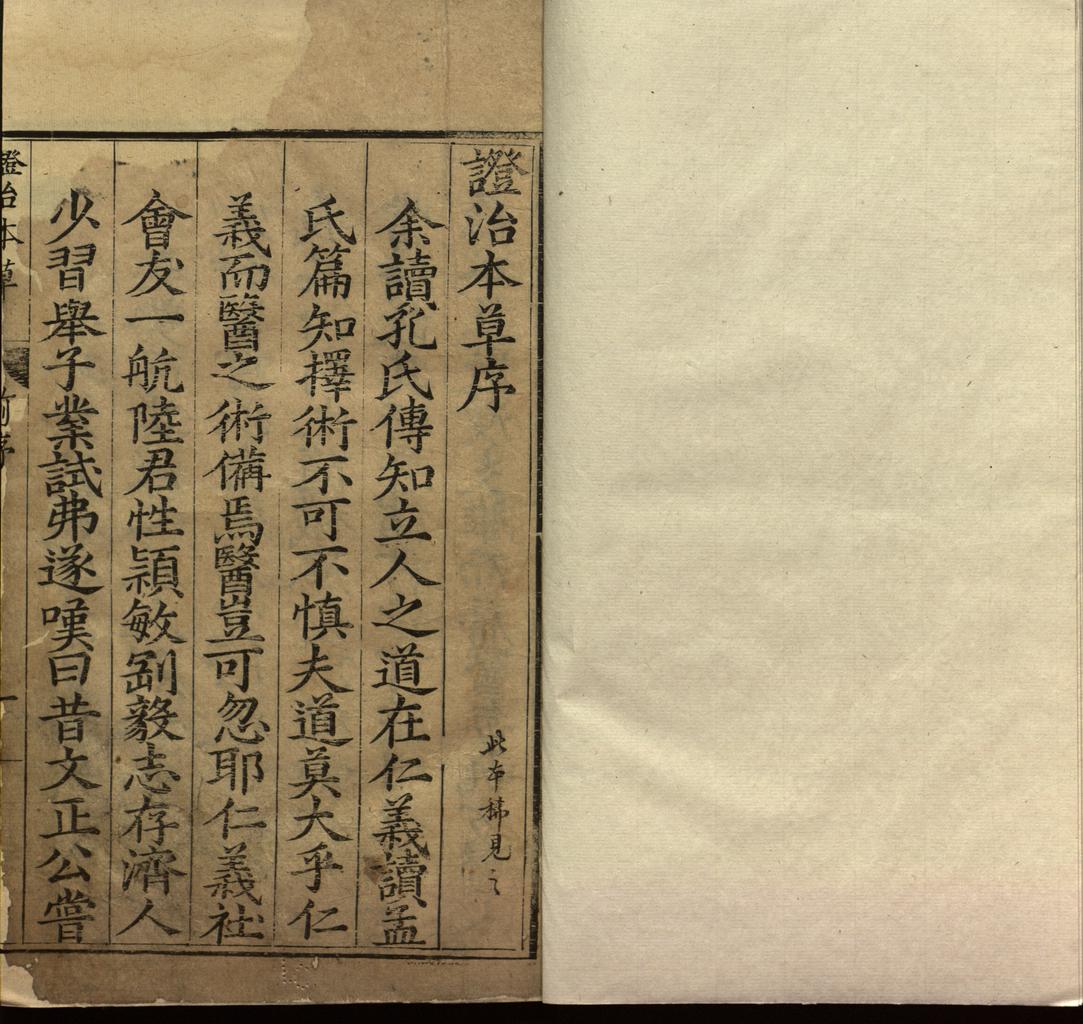 證治本草序
此本稀見之
余讀孔氏傳知立人之道在仁義讀孟
氏篇知擇術不可不慎夫道莫大乎仁
義而醫之術備焉醫豈可忽耶仁義社
會友一航陸君性穎敏剛毅志存濟人
少習舉子業試弗遂嘆曰昔文正公嘗
證治本草
前序